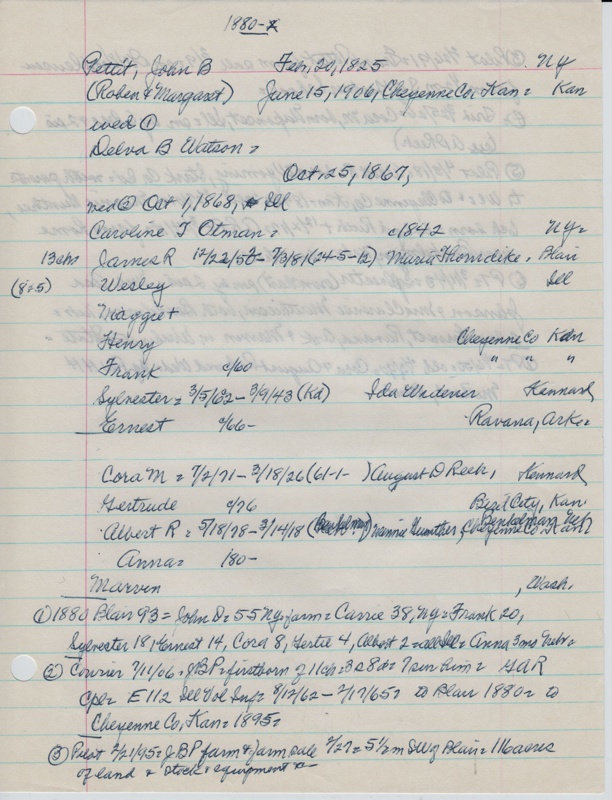 1880-
Pettit, John B Feb, 20, 1825 NY
(Robert & Margaret) June 15, 1906, Cheyenne Co, Kan = Kan
wed ①
Delva B Watson =
Oct, 25, 1867,
wed ② Oct 1, 1868, Ill
Caroline T Otman = c1842 NY=
13 chs James R 12/22/56- 7/3/81 (24-5-12) Maria Thorndike, Blair
(8&5) Wesley Ill
Maggie +
Henry Cheyenne Co Kan
Frank c/60 " " "
Sylvester = 3/5/62 - 3/9/43 (Kd) Ida Widener Kennard
Ernest c/66- Ravana, Ark=
Cora M = 7/2/71 - 3/18/26 (61-1- ) August D Reeh, Kennard
Gertrude c/76 Bird City, Kan.
Albert R = 5/18/78 - 3/14/18 (Benkelman) Nannie Gunther, Cheyenne Co Kan
Benkelman Neb
Anna = 180-
Marvin , Wash.
① 1880 Blair 93 = John D = 55 NY = farm = Carrie 38, NY = Frank 20,
Sylvester 18, Ernest 14, Cora 8, Gertie 4, Albert 2 = all Ill = Anna 3ms Nebr =
② Courier 7/11/06 = JBP = firstborn of 11 ch = 3s 8d = 7 surv him = GAR
Cpl = E 112 Ill Vol Inf = 8/12/62 - 2/17/65? to Blair 1880 = to
Cheyenne Co, Kan = 1895 =
③ Pilot 2/21/95 = JBP farm & farm sale 2/27 = 5½m SW of Blair = 116 acres
of land & stock & equipment